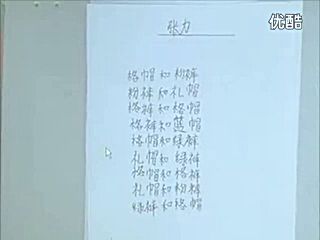 优酷
张力
格帽和粉裤
粉裤和礼帽
格裤和格帽
格裤和蓝帽
格帽和绿裤
礼帽和绿裤
格帽和格裤
礼帽和粉裤
绿裤和格帽